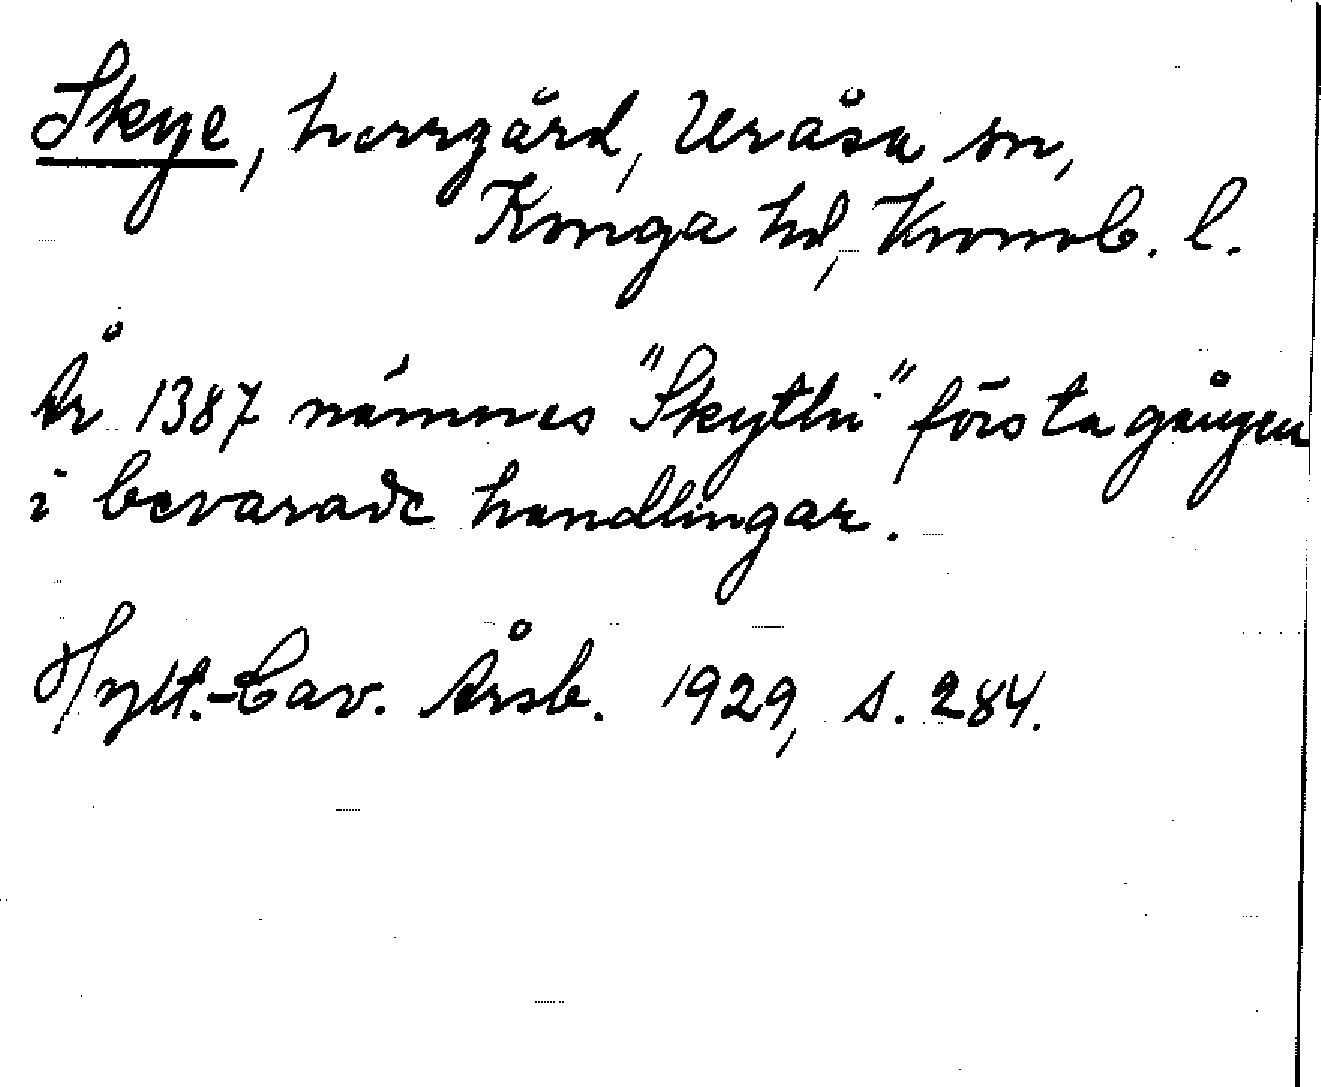 Skye, herrgård, Uråsa sn,
Konga hd, Kronob. l.
År 1387 nämnes "Skythi" första gången
i bevarade handlingar.
Hylt.-Cav. Årsb. 1929, s. 284.